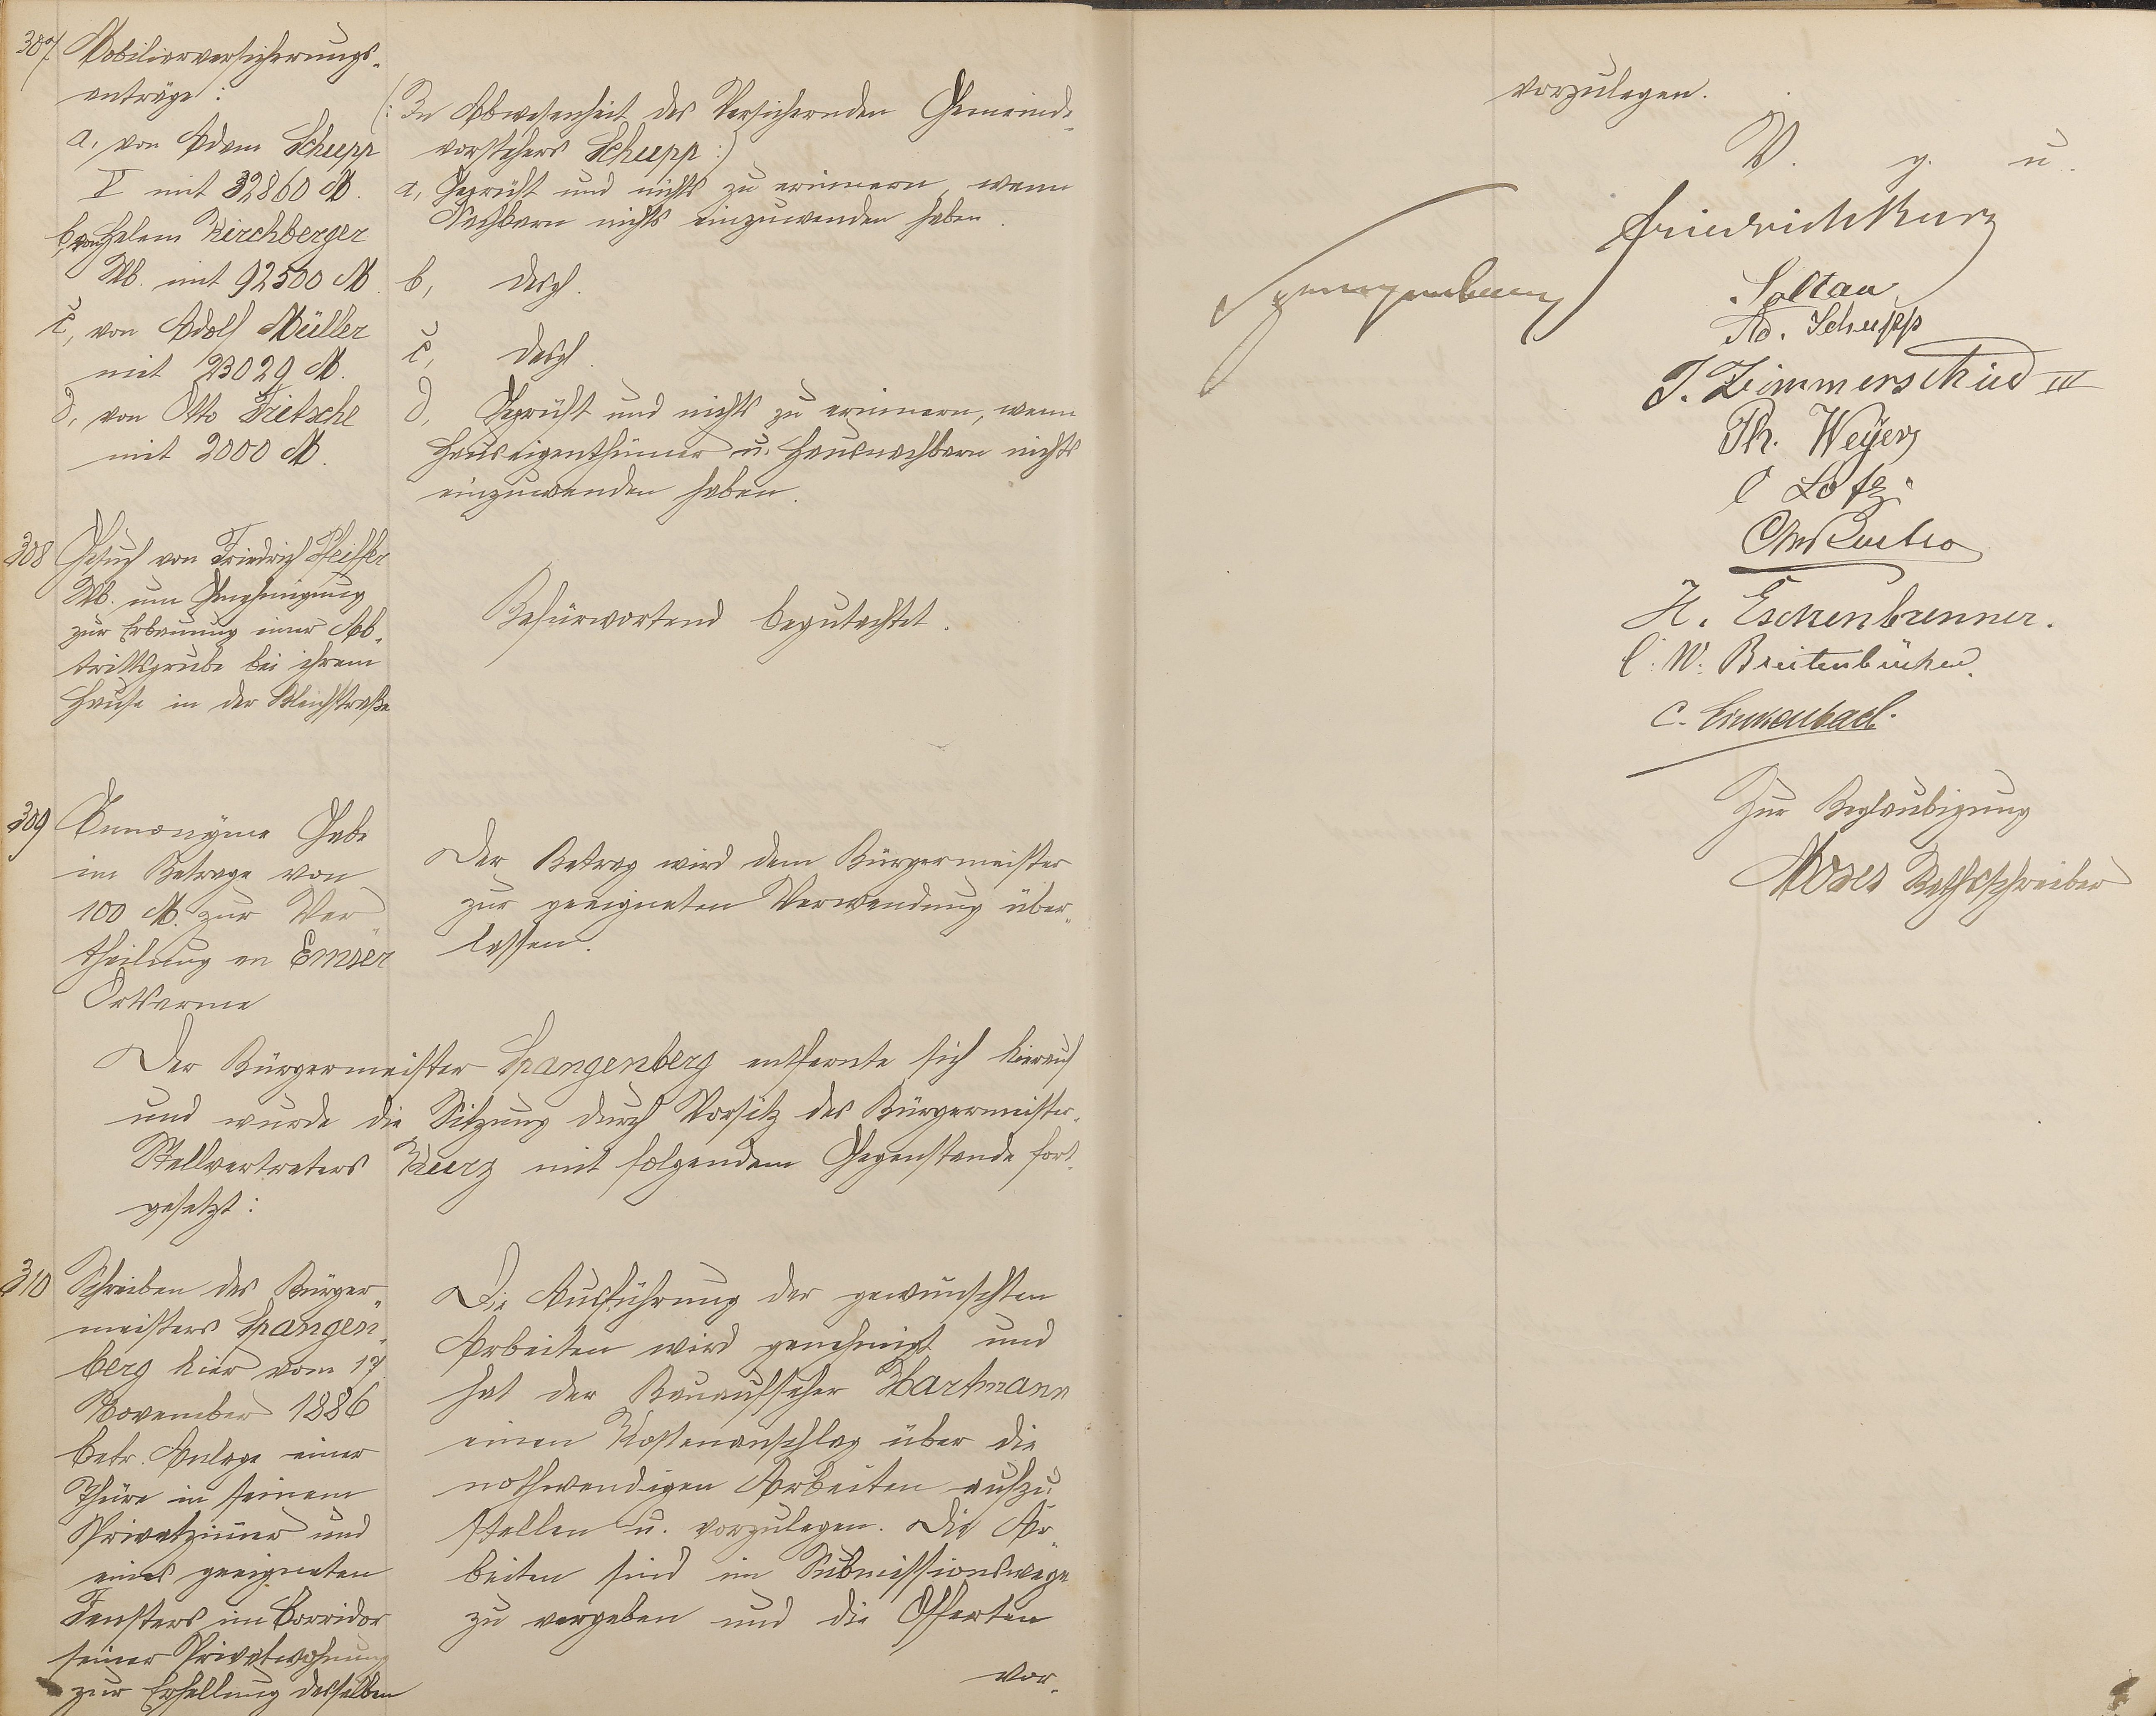 307.
Mobiliarversicherungs-
anträge:
a, von Adam Schupp
V mit 32860 M.
b, von Helene Kirchberger
Wb. mit 92500 M.
c, von Adolf Müller
mit 23029 M.
d, von Otto Fritsche
mit 2000 M.
(: In Abwesenheit des Versichernden Gemeinde-
vorstehers Schupp :)
a, Geprüft und nichts zu erinnern, wenn
Nachbarn nichts einzuwenden haben.
b, desgl.
c, desgl.
d, Geprüft und nichts zu erinnern, wenn
Hauseigenthümer u. Hausnachbarn nichts
einzuwenden haben.
308
Gesuch von Friedrich Pfeiffer
Wb. um Genehmigung
zur Erbauung einer Ab-
trittsgrube bei ihrem
Hause in der Bleichstraße
Befürwortend begutachtet.
309
Annonyme Gabe
im Betrage von
100 M. zur Ver-
theilung an Emser
Ortsarme
Der Betrag wird dem Bürgermeister
zur geeigneten Verwendung über-
lassen.
Der Bürgermeister Spangenberg entfernte sich hierauf
und wurde die Sitzung durch Vorsitz des Bürgermeister-
Stellvertreters Kurz mit folgendem Gegenstande fort-
gesetzt:
310
Schreiben des Bürger-
meisters Spangen-
berg hier vom 17.
November 1886
betr. Anlage einer
Thüre in seinem
Privatzimmer und
eines geeigneten
Fensters im Corridor
seiner Privatwohnung
zur Erhellung desselben
Die Ausführung der gewünschten
Arbeiten wird genehmigt und
hat der Bauaufseher Hartmann
einen Kostenanschlag über die
nothwendigen Arbeiten aufzu-
stellen u. vorzulegen. Die Ar-
beiten sind im Submissionswege
zu vergeben und die Offerten
vor-
vorzulegen.
V. g. u.
Friedrich Kurz
Spangenberg
Soltau
Ad. Schupp
J. Zimmerschied III
Ph. Weyer
C Lotz
H. Eschenbrenner.
C. W. Breitenbücher.
C. Linkenbach.
Zur Beglaubigung
Moses Rathsschreiber